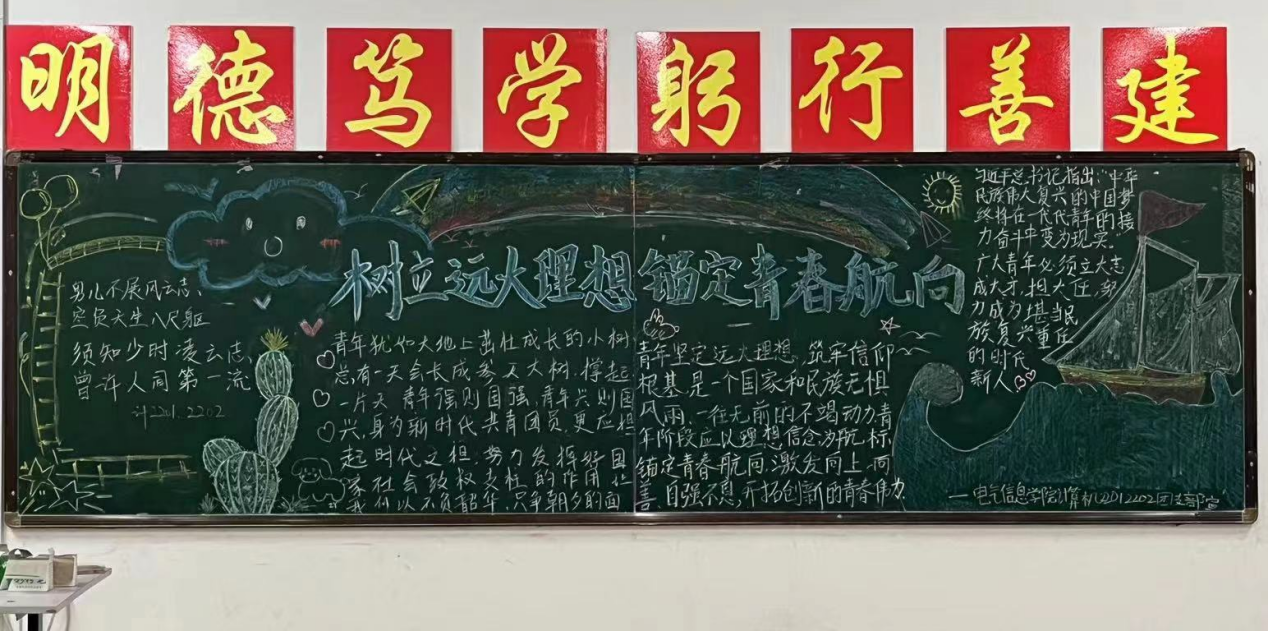 明德笃学躬行善建
树立远大理想 锚定青春航向
男儿不展风云志、
空负天生八尺躯
须知少时凌云志、
曾许人间第一流
计2201.2202
青年犹如大地上茁壮成长的小树
总有一天会长成参天大树,撑起
一片天 青年强则国强,青年兴则国
兴,身为新时代共青团员,更应担
起时代之担,努力发挥好团
家社会政权支柱的作用
我们以不负韶华,只争朝夕的面
青年坚定远大理想、筑牢信仰
根基是一个国家和民族无惧
风雨,一往无前的不竭动力,青
年阶段应以理想信念为航标,
锚定青春航向,激发向上向
善、自强不息,开拓创新的青春伟力
习近平总书记指出:“中华
民族伟大复兴的中国梦
终将在一代代青年的接
力奋斗中变为现实。
广大青年必须立大志
成大才,担大任,努
力成为堪当民
族复兴重任
的时代
新人
——电气信息学院计算机2201 2202团支部宣